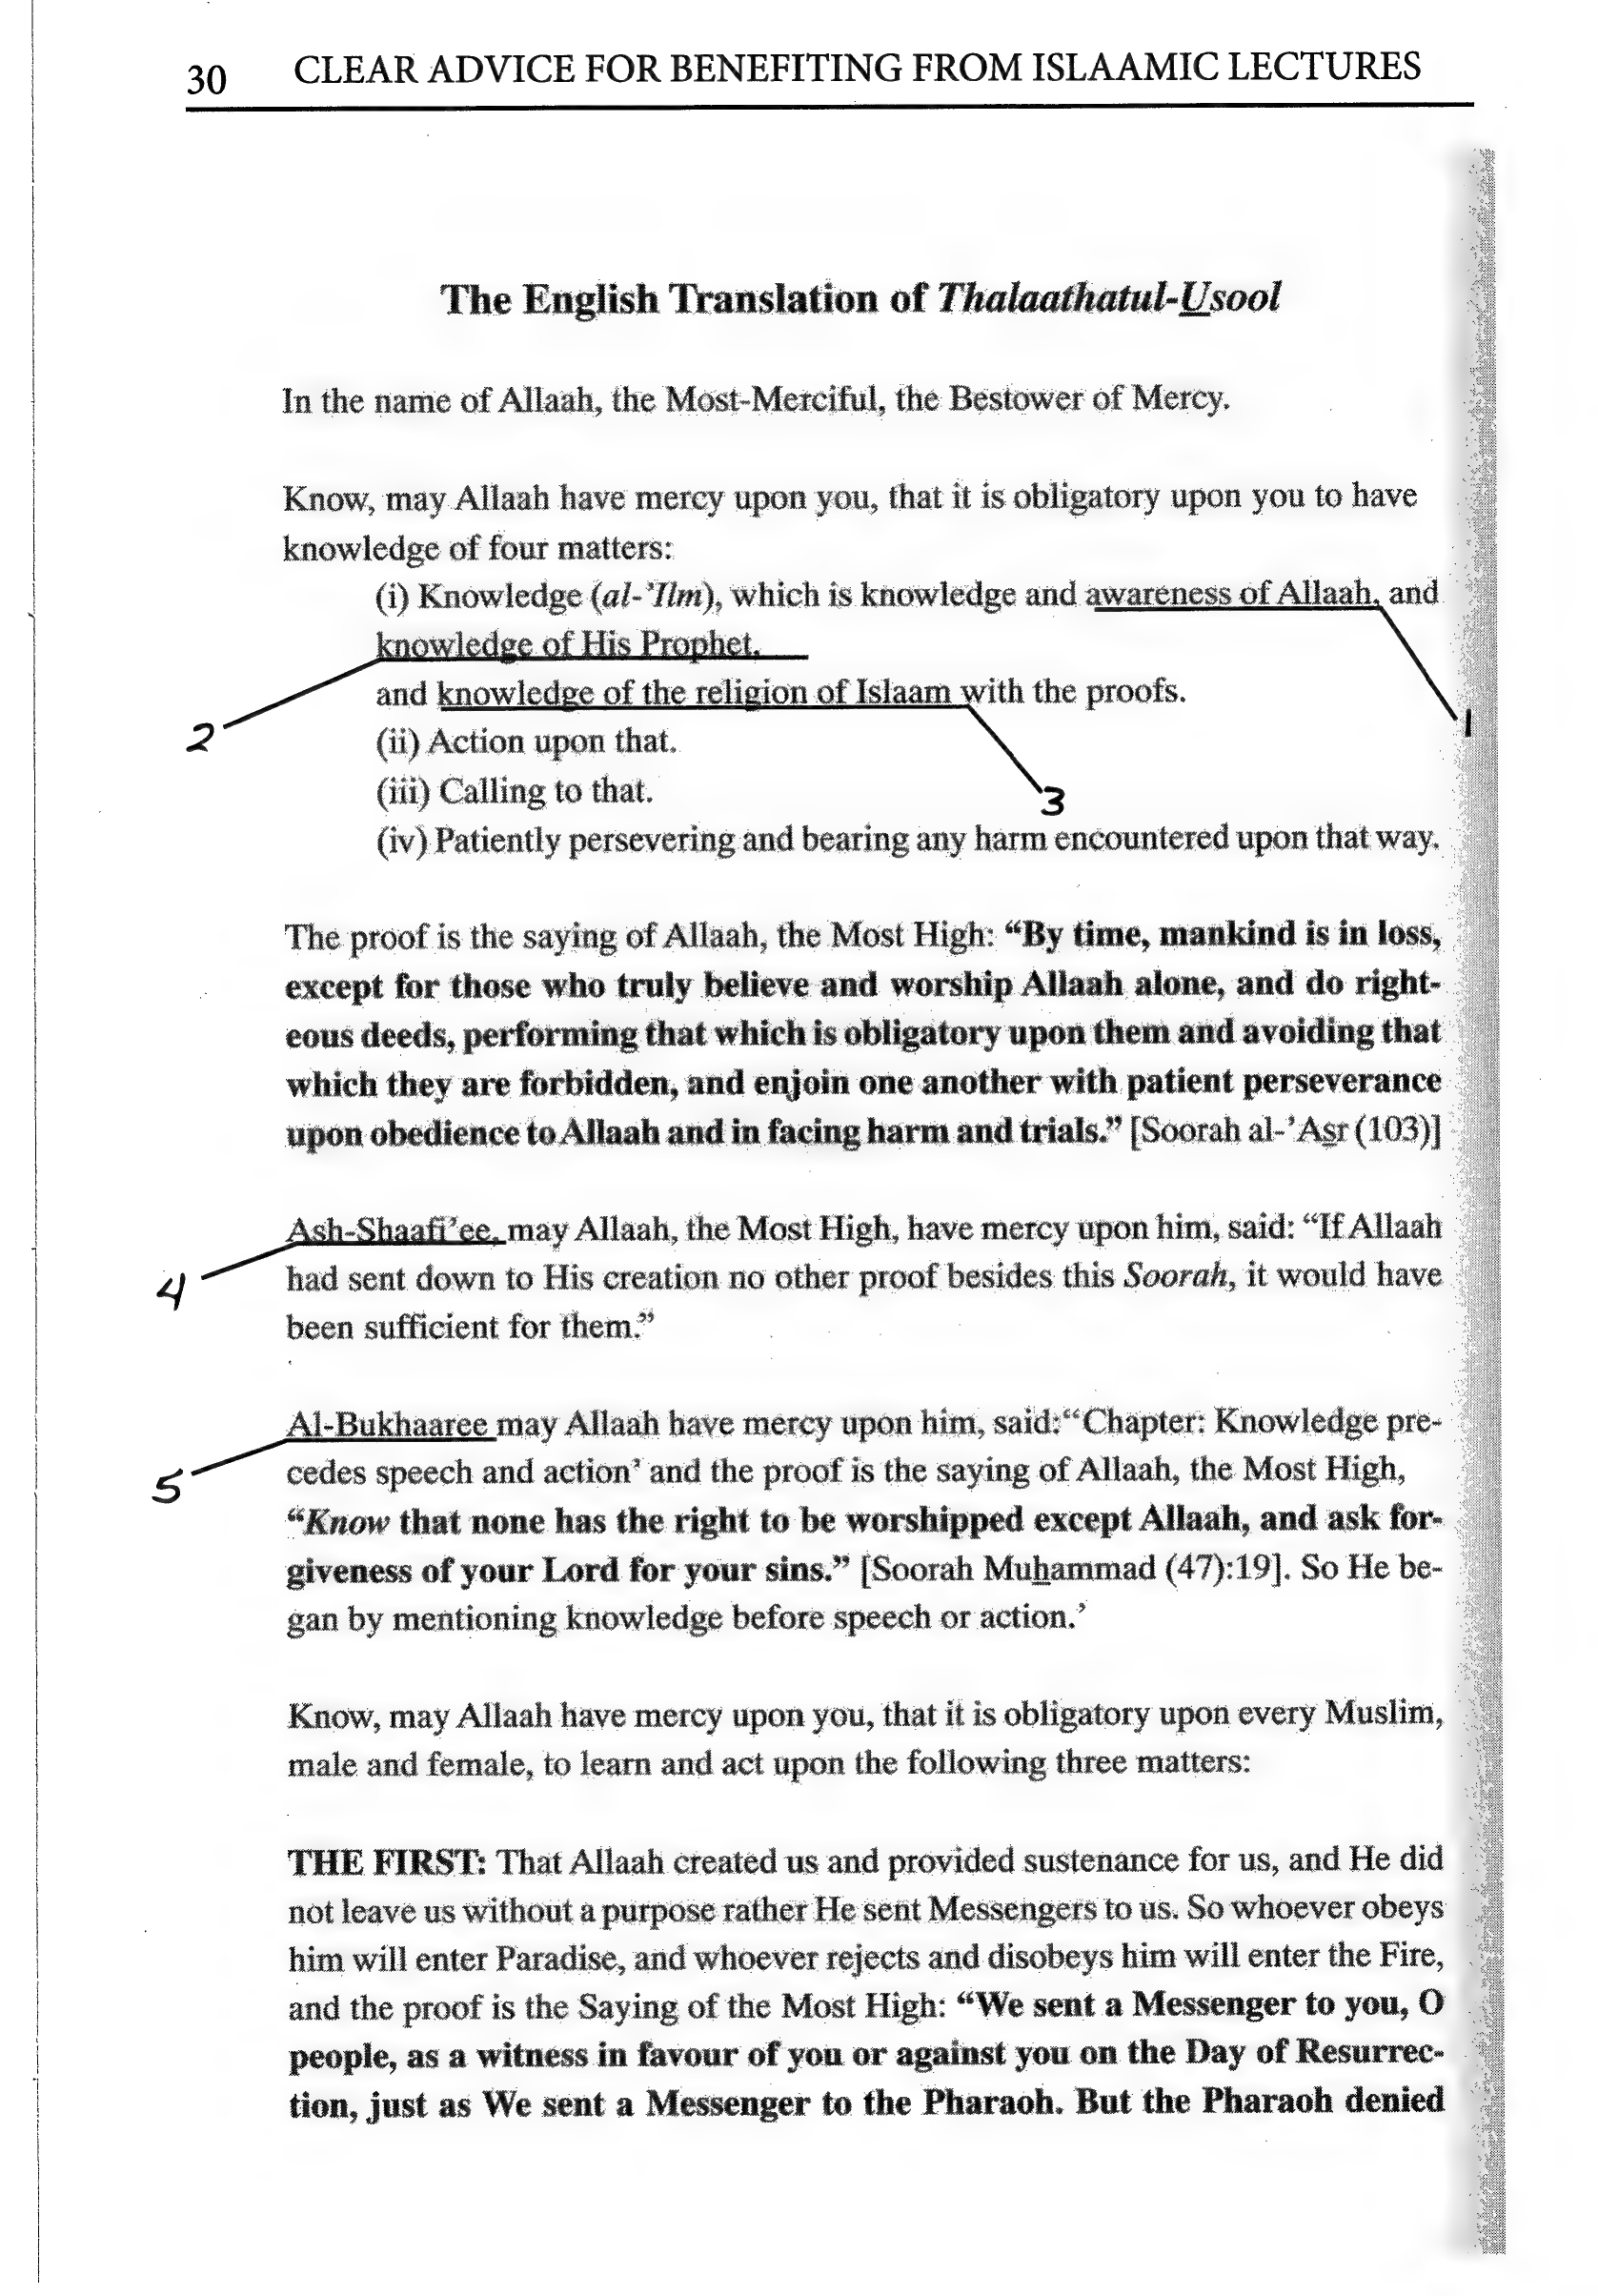 30 CLEAR ADVICE FOR BENEFITING FROM ISLAAMIC LECTURES
The English Translation of Thalaathatul-Usool
In the name of Allaah, the Most-Merciful, the Bestower of Mercy.
Know, may Allaah have mercy upon you, that it is obligatory upon you to have
knowledge of four matters:
(i) Knowledge (al-'Ilm), which is knowledge and awareness of Allaah, and
knowledge of His Prophet,
and knowledge of the religion of Islaam with the proofs.
1
2
(ii) Action upon that.
(iii) Calling to that.
3
(iv) Patiently persevering and bearing any harm encountered upon that way.
The proof is the saying of Allaah, the Most High: “By time, mankind is in loss,
except for those who truly believe and worship Allaah alone, and do right-
eous deeds, performing that which is obligatory upon them and avoiding that
which they are forbidden, and enjoin one another with patient perseverance
upon obedience to Allaah and in facing harm and trials.” [Soorah al-’Asr (103)]
Ash-Shaafi’ee, may Allaah, the Most High, have mercy upon him, said: “If Allaah
4
had sent down to His creation no other proof besides this Soorah, it would have
been sufficient for them.”
Al-Bukhaaree may Allaah have mercy upon him, said:“Chapter: Knowledge pre-
5
cedes speech and action’ and the proof is the saying of Allaah, the Most High,
“Know that none has the right to be worshipped except Allaah, and ask for-
giveness of your Lord for your sins.” [Soorah Muhammad (47):19]. So He be-
gan by mentioning knowledge before speech or action.’
Know, may Allaah have mercy upon you, that it is obligatory upon every Muslim,
male and female, to learn and act upon the following three matters:
THE FIRST: That Allaah created us and provided sustenance for us, and He did
not leave us without a purpose rather He sent Messengers to us. So whoever obeys
him will enter Paradise, and whoever rejects and disobeys him will enter the Fire,
and the proof is the Saying of the Most High: “We sent a Messenger to you, O
people, as a witness in favour of you or against you on the Day of Resurrec-
tion, just as We sent a Messenger to the Pharaoh. But the Pharaoh denied